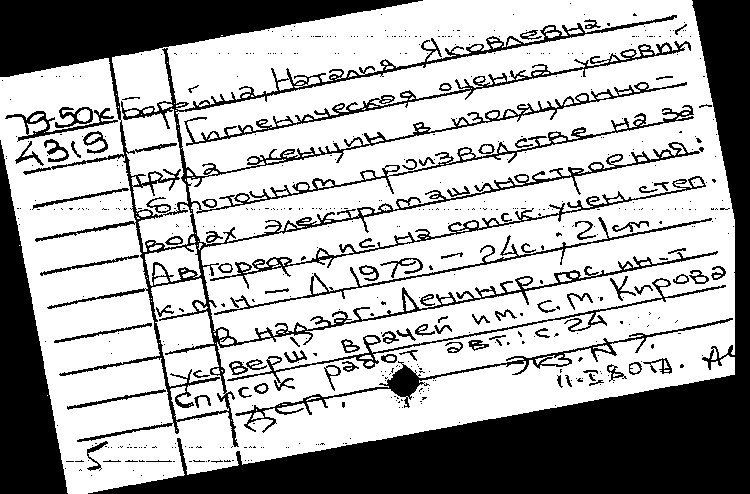 Борейша, Наталия Яковлевна.
79-50к
4319
Гигиеническая оценка условий
труда женщин в изоляционно-
обмоточном производстве на за-
водах электромашиностроения:
Автореф. дис. на соиск. учен. степ.
к.м.н. - Л, 1979. - 24с.; 21см.
В надзаг.: Ленингр. гос. ин-т
усоверш. врачей им. С.М. Кирова
Список работ авт.: с. 24.
ДСП. Экз. N 7.
11-I 80
5